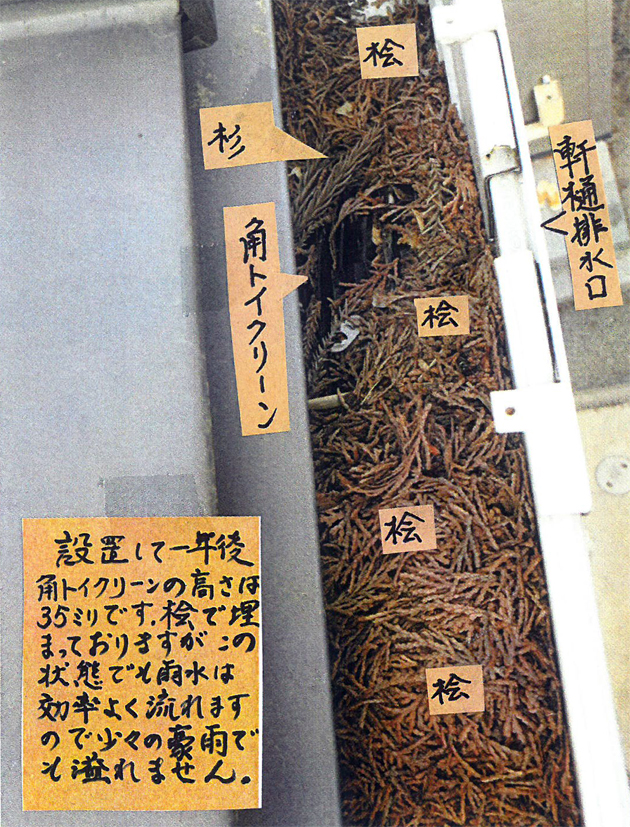 桧
杉
軒樋排水口
角トイクリーン
桧
桧
桧
設置して一年後
角トイクリーンの高さは
35ミリです.桧で埋
まっておりますがこの
状態でも雨水は
効率よく流れます
ので少々の豪雨で
も溢れません。